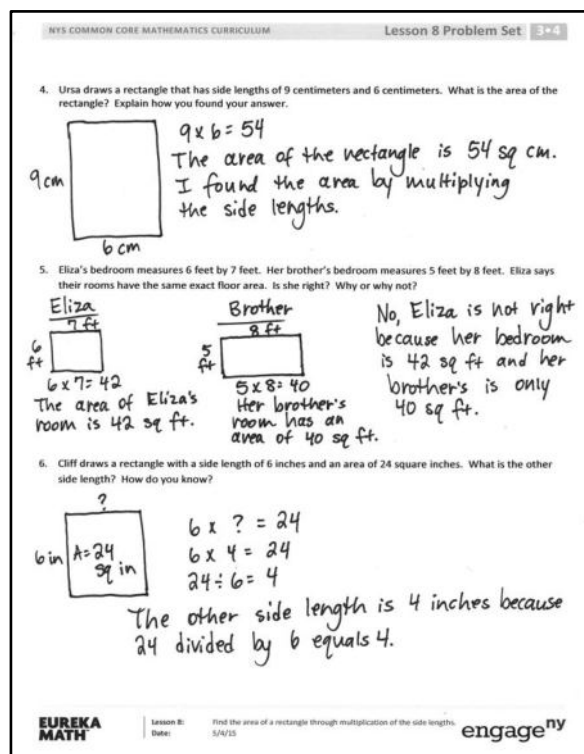 NYS COMMON CORE MATHEMATICS CURRICULUM
Lesson 8 Problem Set 3•4
4. Ursa draws a rectangle that has side lengths of 9 centimeters and 6 centimeters. What is the area of the
rectangle? Explain how you found your answer.
9 cm
6 cm
9 x 6 = 54
The area of the rectangle is 54 sq cm.
I found the area by multiplying
the side lengths.
5. Eliza's bedroom measures 6 feet by 7 feet. Her brother's bedroom measures 5 feet by 8 feet. Eliza says
their rooms have the same exact floor area. Is she right? Why or why not?
Eliza
7 ft
6
ft
6 x 7 = 42
The area of Eliza's
room is 42 sq ft.
Brother
8 ft
5
ft
5 x 8 = 40
Her brother's
room has an
area of 40 sq ft.
No, Eliza is not right
because her bedroom
is 42 sq ft and her
brother's is only
40 sq ft.
6. Cliff draws a rectangle with a side length of 6 inches and an area of 24 square inches. What is the other
side length? How do you know?
?
6 in
A=24
sq in
6 x ? = 24
6 x 4 = 24
24 ÷ 6 = 4
The other side length is 4 inches because
24 divided by 6 equals 4.
EUREKA
MATH
Lesson 8: Find the area of a rectangle through multiplication of the side lengths.
Date: 5/4/15
engage ny